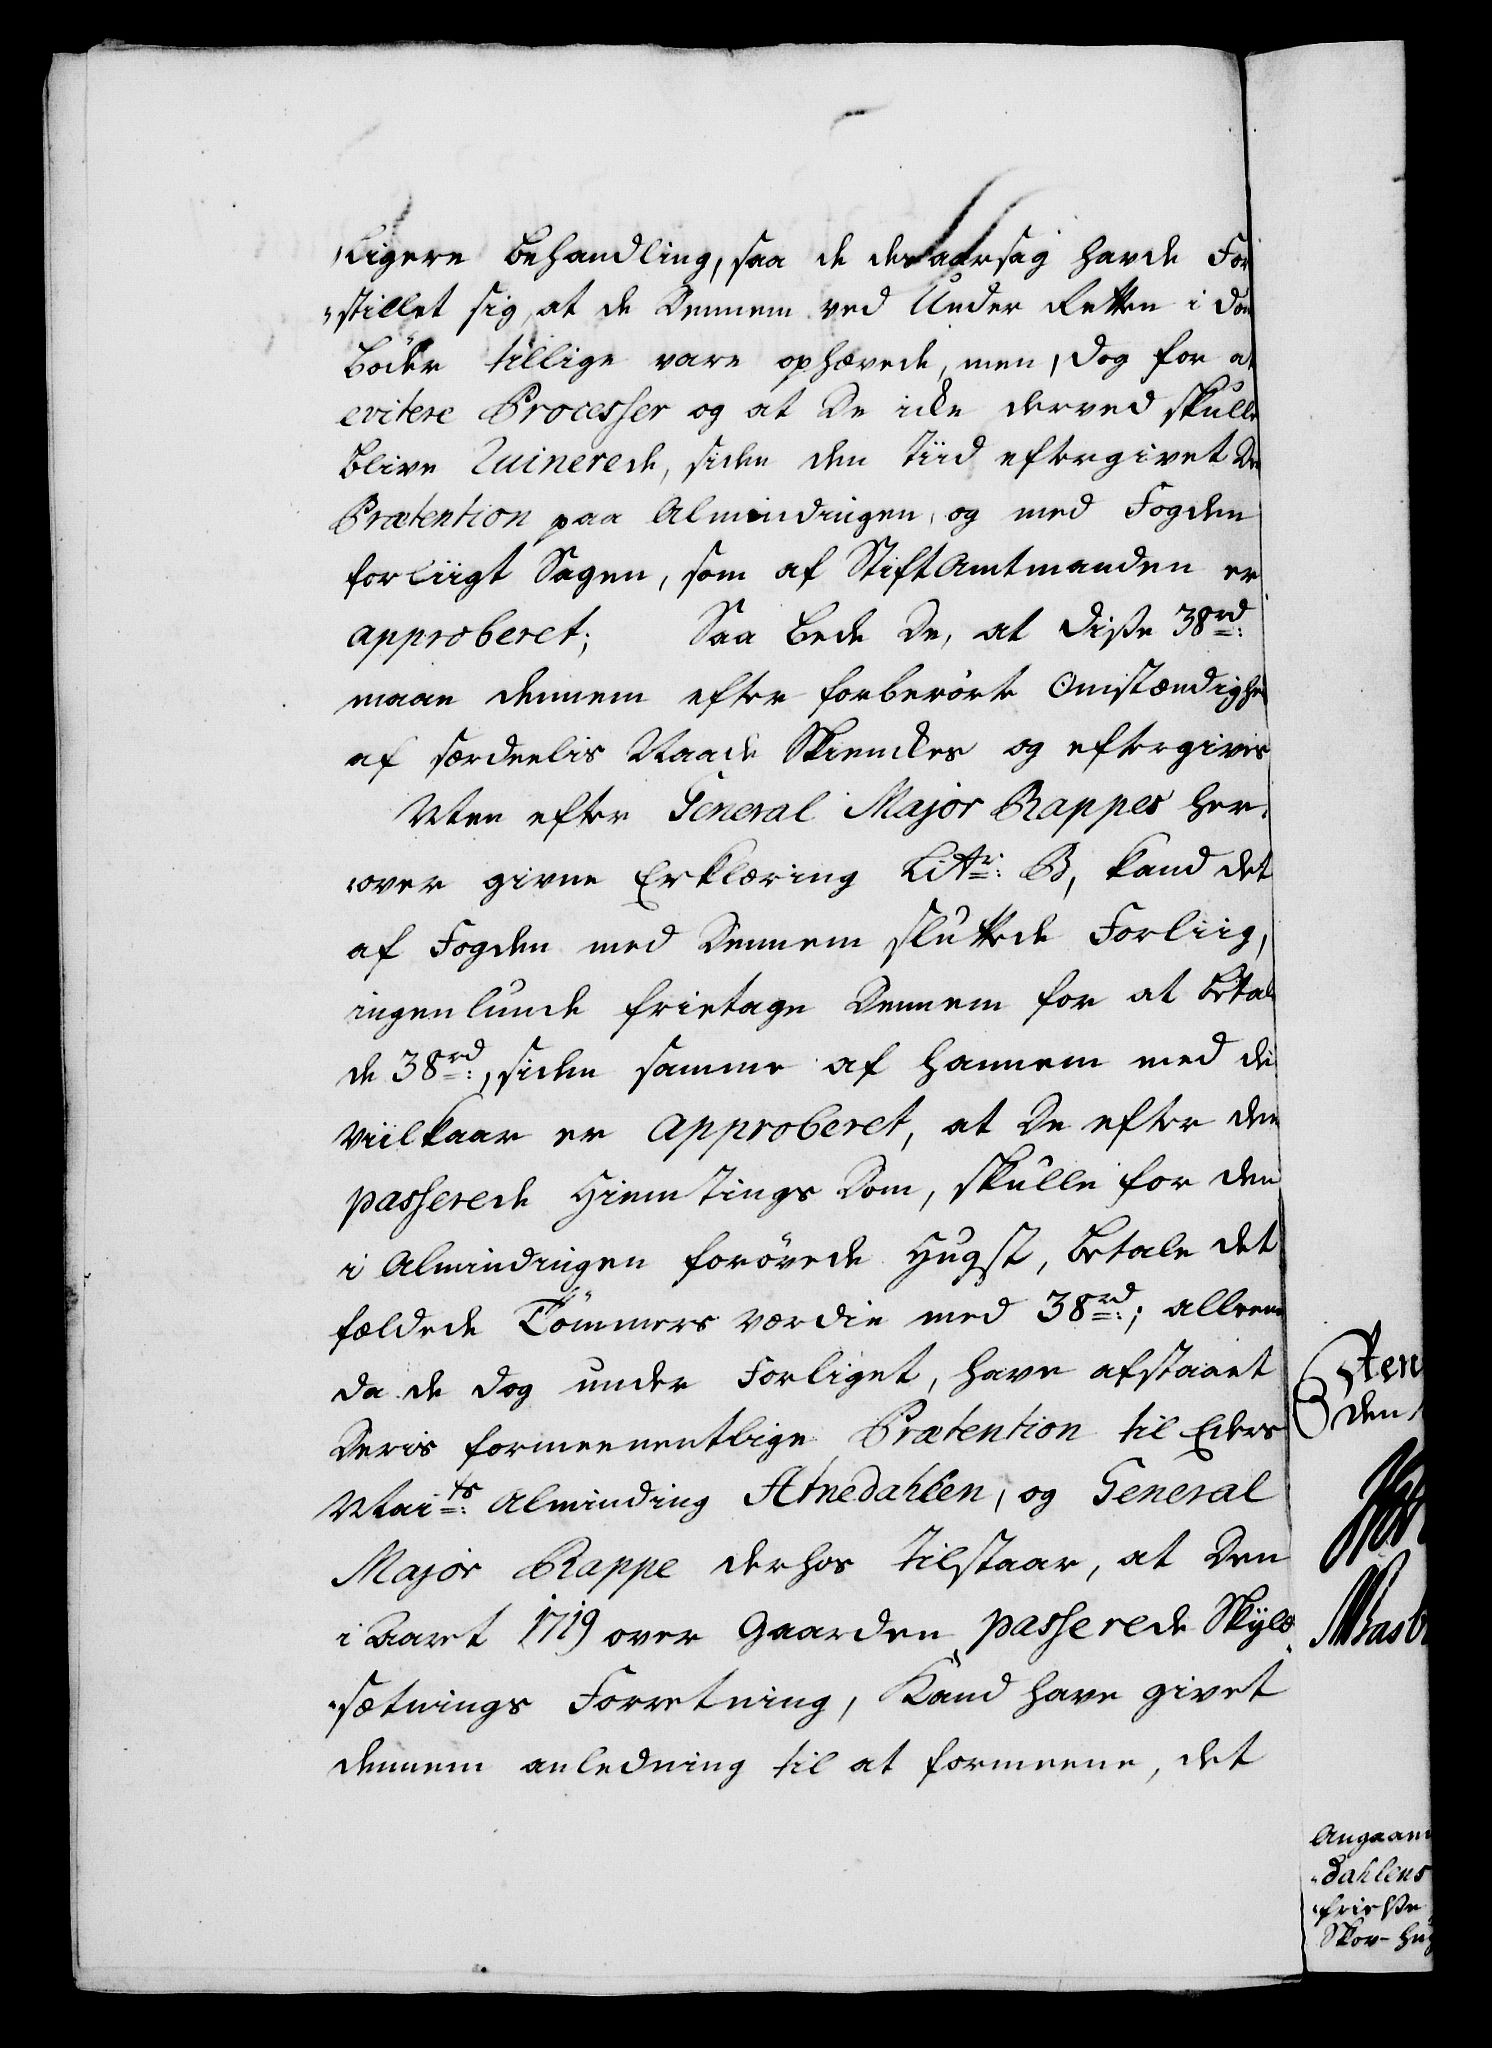 „ligere Behandling, saa de der aarsag havde For
„stillet sig, at de Dennem ved Under Retten i Dom
Böder tillige vare ophævede, men, dog for at
evitere Processer og at De icke derved skulle
blive Ruinerede, siden den Tiid eftergivet De
Prætention paa Almindingen, og med Fogden
forliigt Sagen, som af Stiftamtmanden er
approberet; Saa bede De, at disse 38rd:
maae dennem efter forberörte Omstændighe
af særdeelis Naade Skienckes og eftergives
Men efter General Major Rappes her„
„over givne Erklæring Littr: B, kand det
af Fogden med Dennem sluttede Forliig,
ingenlunde frietage Dennem for at betale
de 38rd:, siden samme af hannem med de
Viilkaar er approberet, at De efter den
passerede Hiemtings Dom, skulle for den
i Almindingen forövede Hugst, betale det
fældede Tömmers værdie med 38rd:; alleene
da de dog under Forliget, have afstaaet
Deris formeenentlige Prætention til Eders
Maits: Alminding Atnedahlen, og General
Major Rappe derhos tilstaar, at Den
i Aaret 1719 over Gaarden passerede Skyld
„sætnings Forretning, Kand have givet
dennem anledning til at formeene, det
den
Angaaen
„dahlens
Skov-hug